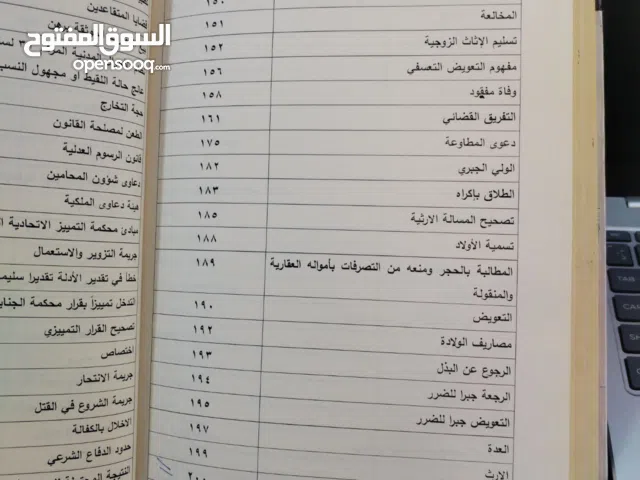 ١٥٠
المخالعة ١٥١
تسليم الإثاث الزوجية ١٥٢
مفهوم التعويض التعسفي ١٥٦
وفاة مفقود ١٥٨
التفريق القضائي ١٦١
دعوى المطاوعة ١٧٥
الولي الجبري ١٨٢
الطلاق بإكراه ١٨٣
تصحيح المسالة الارثية ١٨٥
تسمية الأولاد ١٨٨
المطالبة بالحجر ومنعه من التصرفات بأمواله العقارية ١٨٩
والمنقولة
التعويض ١٩٠
مصاريف الولادة ١٩٢
الرجوع عن البذل ١٩٣
الرجعة جبرا للضرر ١٩٤
التعويض جبرا للضرر ١٩٥
العدة ١٩٧
الارث ١٩٩
٢٠٠
قضايا المتقاعدين
السوق المفتوح
opensooq.com
حالة اللقيط أو مجهول النسب
حجة التخارج
لطعن لمصلحة القانون
قانون الرسوم العدلية
دعاوى شؤون المحامين
هيئة دعاوى الملكية
مبادئ محكمة التمييز الاتحادية
جريمة التزوير والاستعمال
خطأ في تقدير الأدلة تقديرا
التدخل تمييزاً بقرار محكمة
تصحيح القرار التمييزي
اختصاص
جريمة الانتحار
جريمة الشروع في القتل
الاخلال بالكفالة
حدود الدفاع الشرعي
النتيجة